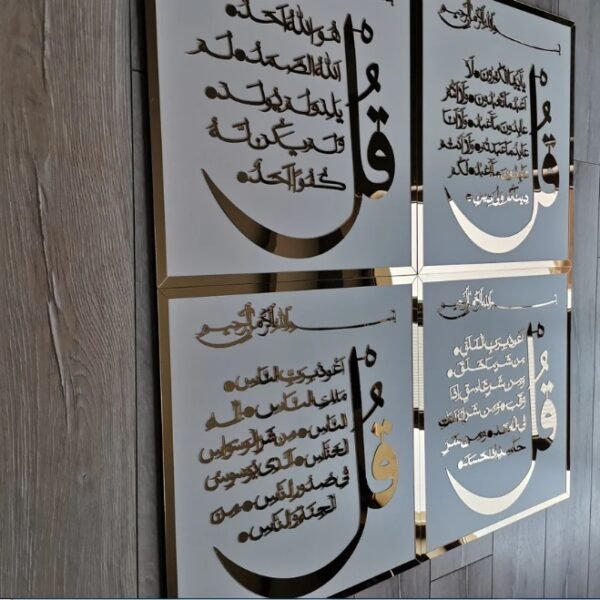 قل
هو الله أحد
الله الصمد لم
يلد ولم يولد
ولم يكن له
كفوا أحد
بسم الله الرحمن الرحيم
قل
يا أيها الكافرون لا
أعبد ما تعبدون ولا أنتم
عابدون ما أعبد ولا أنا
عابد ما عبدتم ولا أنتم
عابدون ما أعبد لكم
دينكم ولي دين
بسم الله الرحمن الرحيم
قل
أعوذ برب الناس
ملك الناس إله
الناس من شر الوسواس
الخناس الذي يوسوس
في صدور الناس من
الجنة والناس
بسم الله الرحمن الرحيم
قل
أعوذ برب الفلق
من شر ما خلق
ومن شر غاسق إذا
وقب ومن شر النفاثات
في العقد ومن شر
حاسد إذا حسد